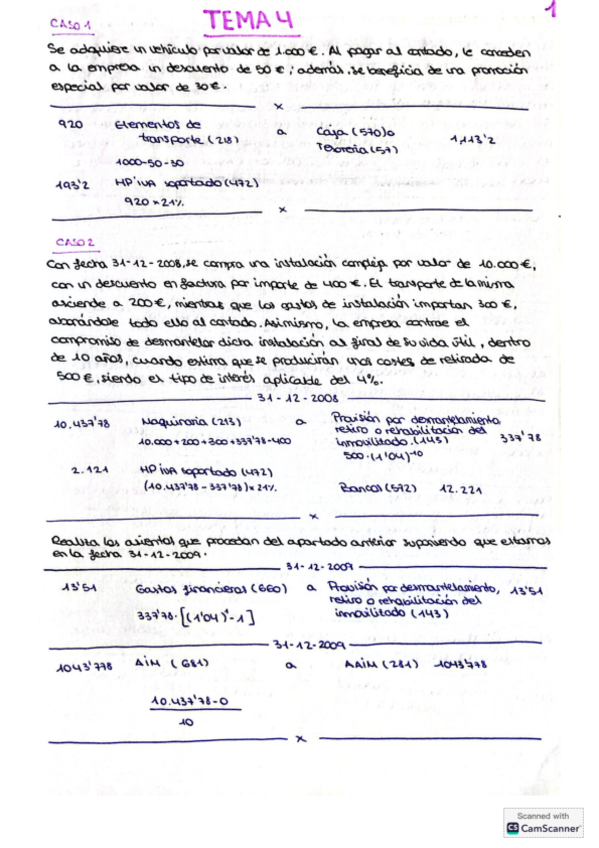 1
CASO 1
TEMA 4
Se adquiere un vehículo por valor de 1.000 €. Al pagar al contado, le conceden
a la empresa un descuento de 50 €; además, se beneficia de una promoción
especial por valor de 30 €.
x
920 Elementos de a Caja (570) o 1,113'2
transporte (218) Tesorería (57)
1000-50-30
193'2 HP IVA soportado (472)
920 × 21%
x
CASO 2
Con fecha 31-12-2008, se compra una instalación compleja por valor de 10.000 €,
con un descuento en factura por importe de 400 €. El transporte de la misma
asciende a 200 €, mientras que los gastos de instalación importan 300 €,
abonándole todo ello al contado. Asimismo, la empresa contrae el
compromiso de desmantelar dicta instalación al final de su vida útil, dentro
de 10 años, cuando estima que se producirán unos costes de retirada de
500 €, siendo el tipo de interés aplicable del 4%.
31-12-2008
10.437'78 Maquinaria (213) a Provisión por desmantelamiento
retiro o rehabilitación del
inmovilizado. (143) 337'78
10.000+200+300+337'78-400
500·(1'04)-10
2.121 HP IVA soportado (472)
(10.437'78 - 337'78) × 21% Bancos (572) 12.221
x
Realiza los asientos que procedan del apartado anterior suponiendo que estamos
en la fecha 31-12-2009.
31-12-2009
13'51 Gastos financieros (660) a Provisión por desmantelamiento, 13'51
retiro o rehabilitación del
337'78·[(1'04)1-1] inmovilizado (143)
31-12-2009
1043'778 AIM (681) a AAIM (281) 1043'778
10.437'78-0
10
x
Scanned with
CS CamScanner